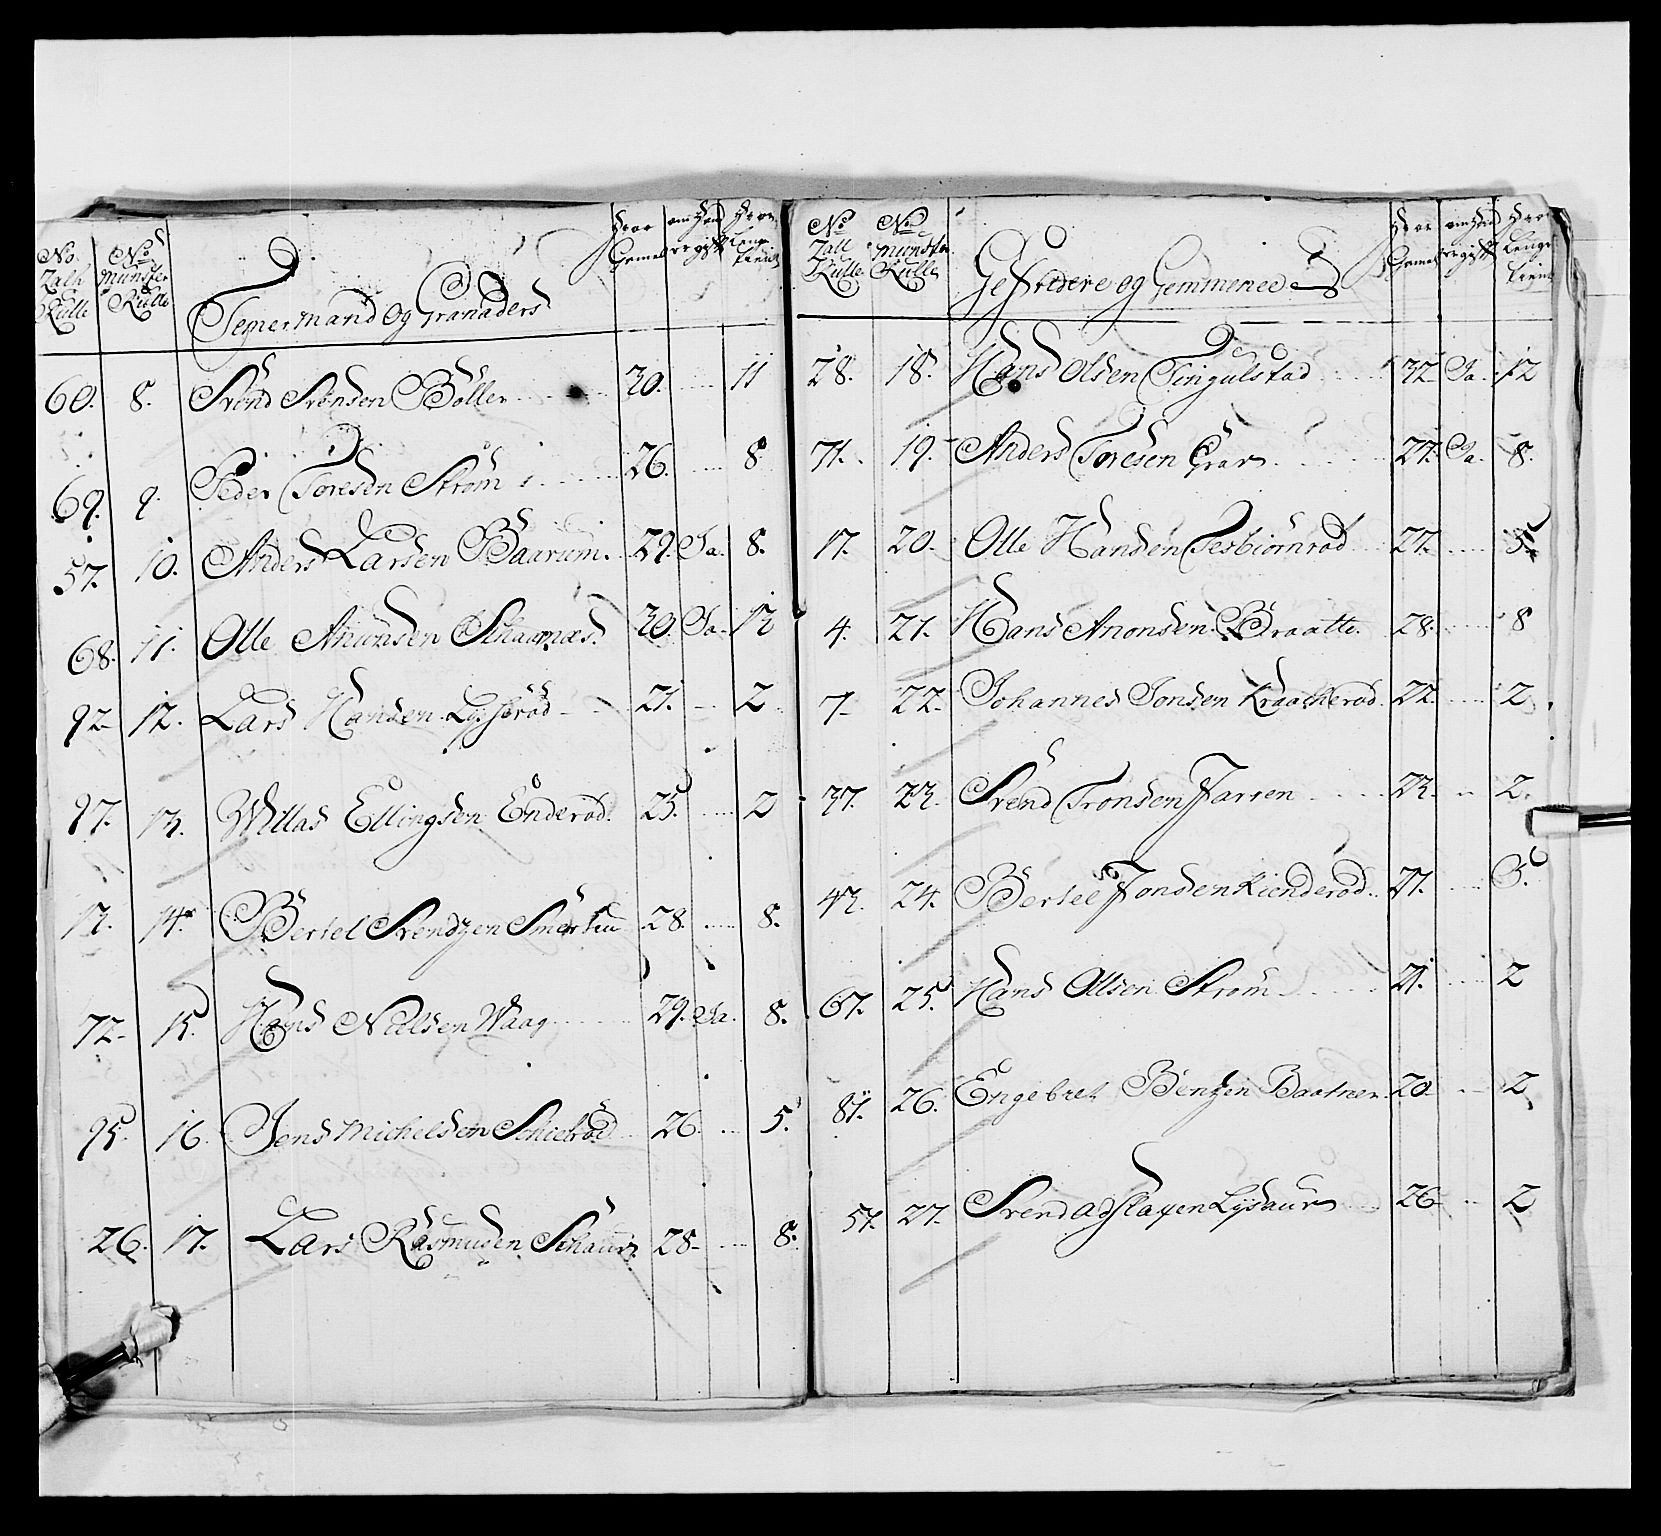 No Zall Rulle No Munster Rulle Temermand og Granaders Hvor Gamel om Hand regist Hvor lenge tient
60. 8. Svend Svendsen Böller 30. 11
69. 9. Peder Toresen Ström 26. 8
57. 10. Anders Larsen Baarum. 29. Ja. 8.
68. 11. Olle Anonsen 30. Ja. 12
92 12. Lars Hansen 21. 2
97. 13. Willas Ellingsen Enderöd. 25. 2
12. 14. Bertel Svendzen 28. 8.
72 15. Hans Nielsen Waag 29. Ja. 8.
95. 16. Jens Michelsen Schieröd 26. 5.
26. 17. Lars Rasmusen 28 8.
No Zall Rulle No Munster Rulle Gefredere og Gemmenee Hvor Gamel om Hand regist Hvor lenge tient
28. 18. Hans Olsen Tingulstad 32 Ja. 12
71. 19. Anders Toresen 27. Ja. 8.
17. 20. Olle Hansen Tesbiörnröd 27. 5.
4. 21. Hans Anonsen Braatte. 28. 8
7 22 Johannes Jonsen Kraakeröd. 22. 2
37. 23. Svend Tronsen Farren 23. 2.
43. 24. Bertel Jonsen Kienderöd. 21. 3.
67. 25. Hans Olsen Ström 21. 2
81. 26. Engebret Benzen Baatner. 20 2
51. 27. Svend 26 2